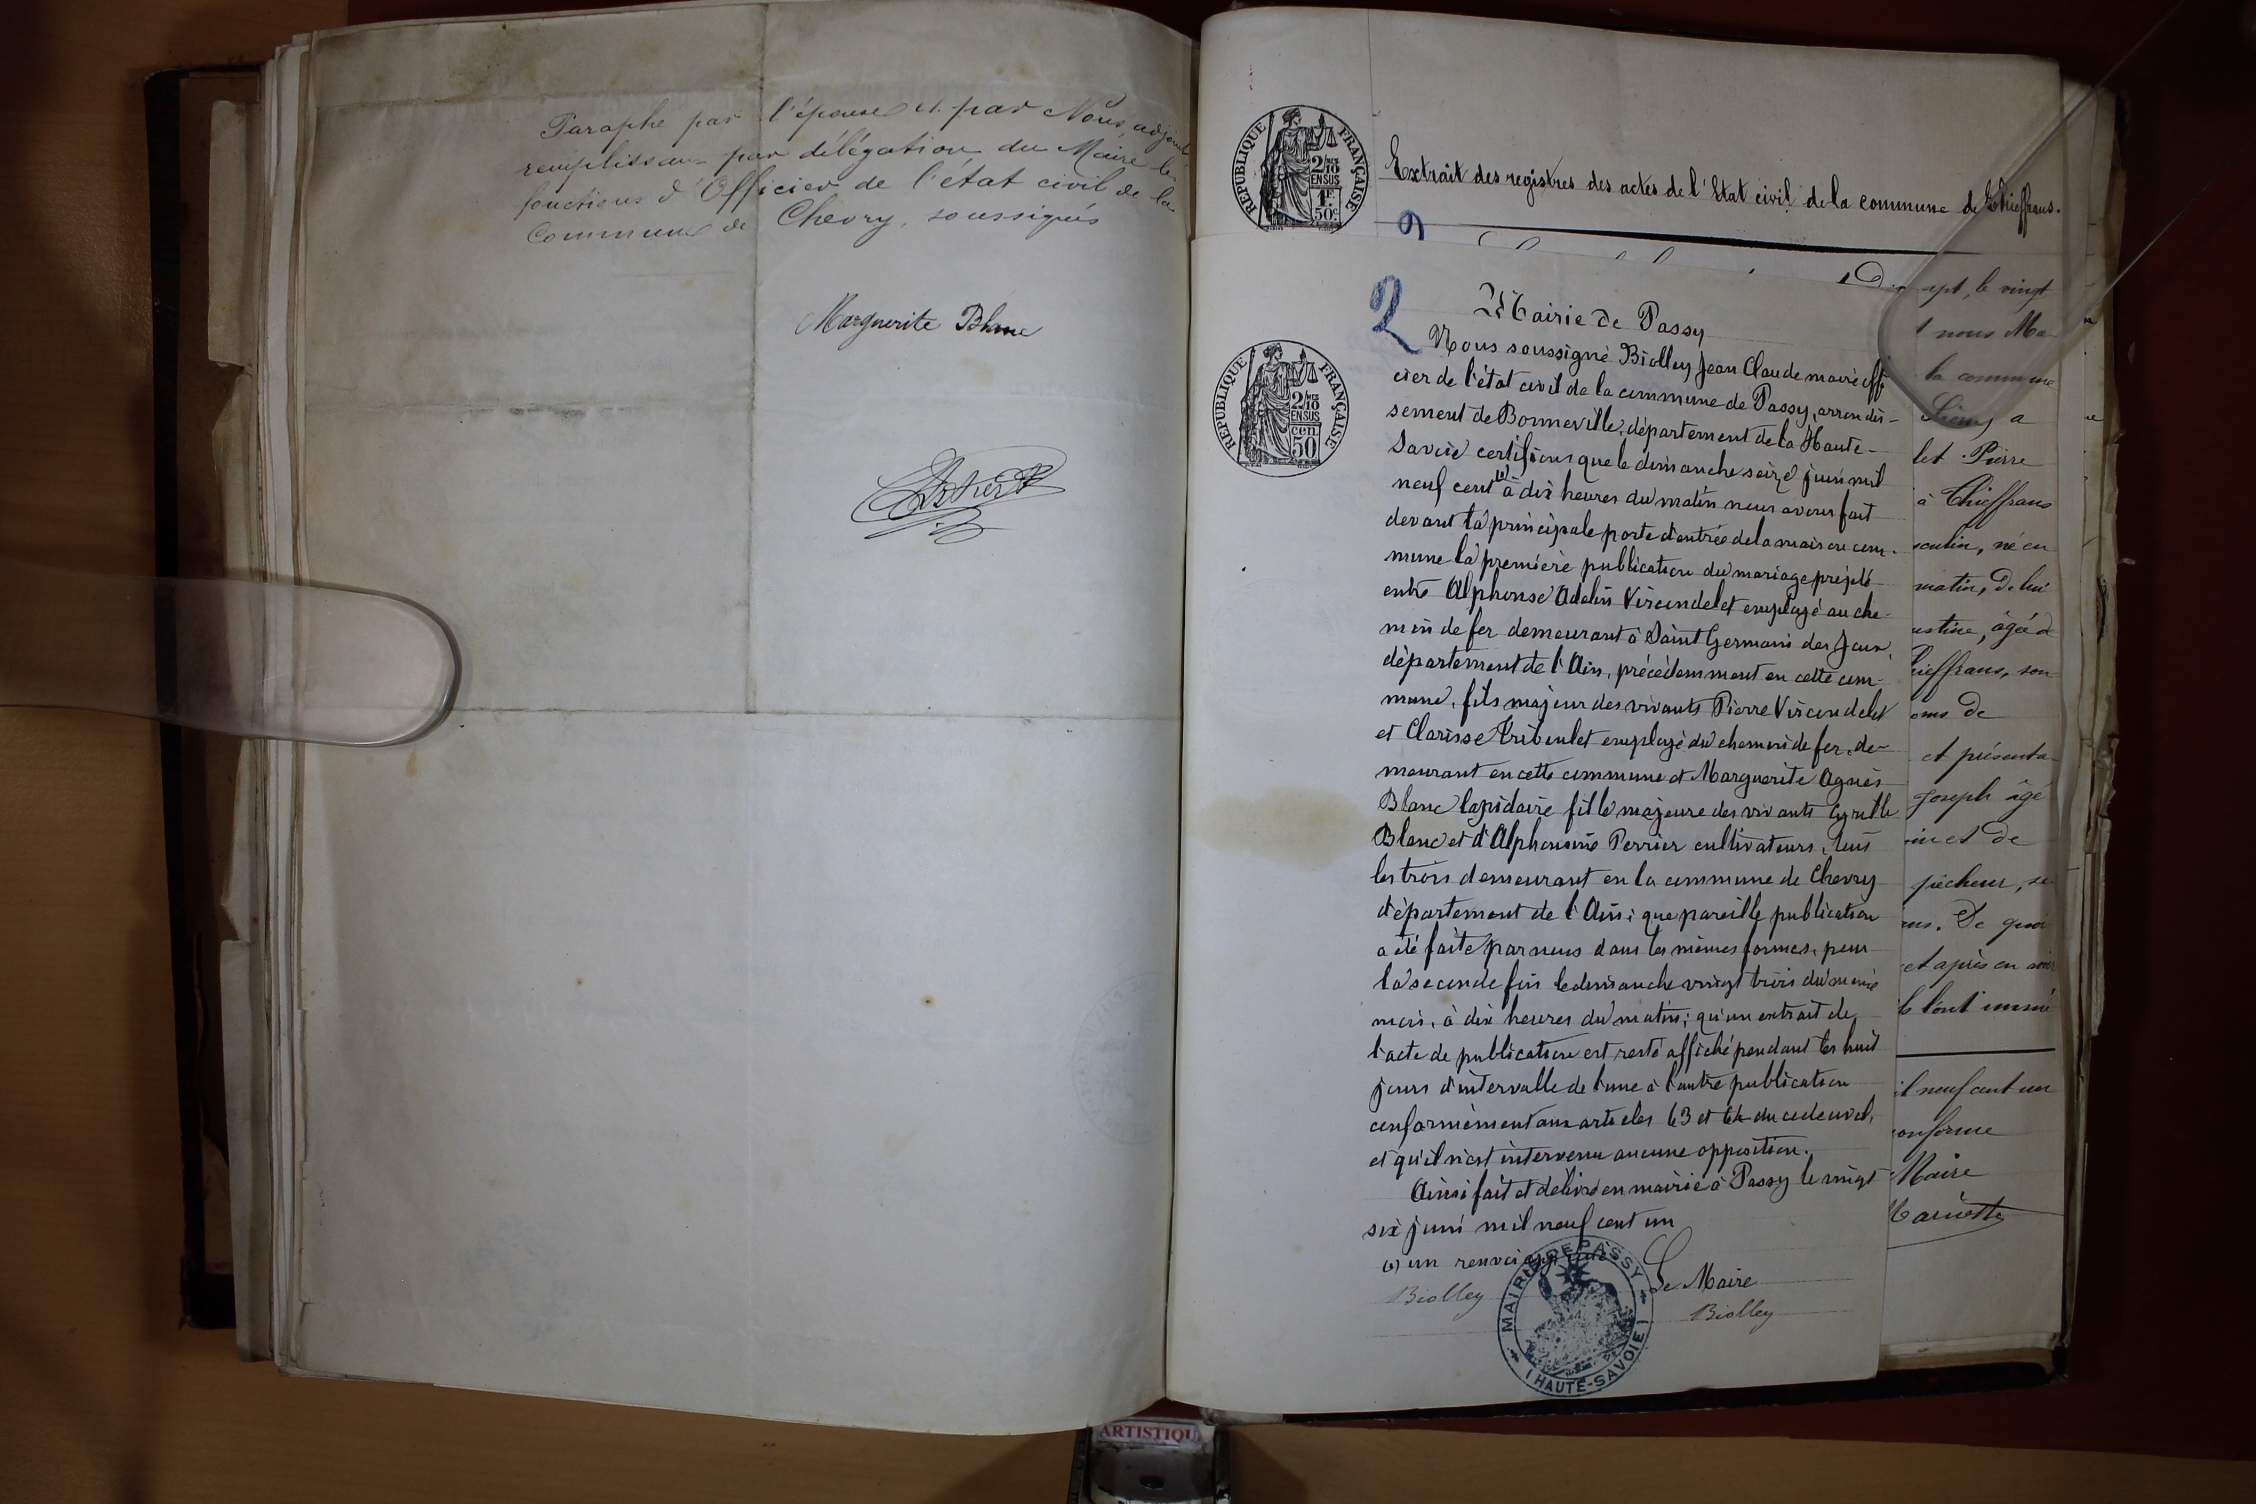 Paraphé par l'épouse et par Nous, adjoint
remplissant par délégation du Maire les
fonctions d'Officier de l'état civil de la
Commune de Chevry, soussignés
Marguerite Blanc
RÉPUBLIQUE FRANÇAISE
2/10 EN SUS
1F. 50c
Extrait des registres des actes de l'Etat civil de la commune de Chieffrans.
2
Mairie de Passy
RÉPUBLIQUE FRANÇAISE
2/10 EN SUS
cen 50
Nous soussigné Biolley Jean Claude maire offi
cier de l'état civil de la commune de Passy, arrondis-
sement de Bonneville, département de la Haute-
Savoie certifions que le dimanche seize juin mil
neuf cent (1) à dix heures du matin nous avons fait
devant la principale porte d'entrée de la maison com-
mune la première publication du mariage projeté
entre Alphonse Adelin Vircondelet employé au che-
min de fer demeurant à Saint Germain des Joux,
département de l'Ain, précédemment en cette com-
mune, fils majeur des vivants Pierre Vircondelet
et Clarisse Triboulet employé du chemin de fer, de-
meurant en cette commune et Marguerite Agnès
Blanc lapidaire fille majeure des vivants Cyrille
Blanc et d'Alphonsine Perrier cultivateurs, tous
les trois demeurant en la commune de Chevry
département de l'Ain; que pareille publication
a été faite par nous dans les mêmes formes, pour
la seconde fois le dimanche vingt trois du même
mois, à dix heures du matin; qu'un extrait de
l'acte de publication est resté affiché pendant les huit
jours d'intervalle de l'une à l'autre publication
conformément aux articles 63 et 64 du code civil,
et qu'il n'est intervenu aucune opposition.
Ainsi fait et délivré en mairie à Passy le vingt
six juin mil neuf cent un
(1) un renvoi approuvé
Le Maire
Biolley
Biolley
MAIRIE DE PASSY
(HAUTE-SAVOIE)
sept, le vingt
nous Ma
la commune
let Pierre
à Chieffrans
sculin, né en
matin, de lui
ustine, âgée d
hieffrans, son
oms de
et présenta
Joseph âgé
in et de
pêcheur, se
ns. De quoi
et après en avoir
ils l'ont immé
il neuf cent un
conforme
Maire
ARTISTIQU